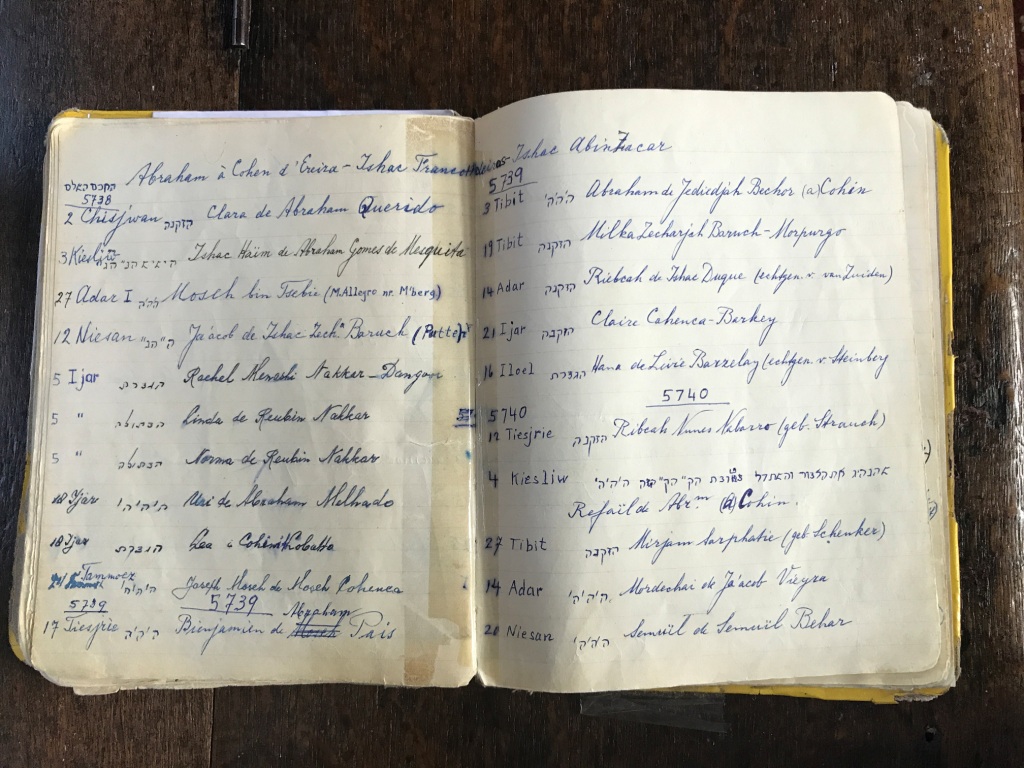 Abraham à Cohen d'Ereira - Ishac
5738
2 Chisjwan הזקנה Clara de Abraham Querido
3 Kiesliw Ishac Haïm de Abraham Gomes de Mesquita
27 Adar I Moseh bin Tsebie (M. Allegro nr. M'berg)
12 Niesan Ja'acob de Ishac Zech.ª Baruch (Putte)
5 Ijar הנצרת Rachel Nakkar - Dangoor
5 " Linda de Reubin Nakkar
5 " Norma de Reubin Nakkar
18 Ijar Uri de Abraham Melhado
18 Ijar הנצרת Lea
Tammoez
Joseph Moseh de Moseh Cohenca
5739 5739
Abraham
17 Tiesjrie Bienjamien de Moseh Pais
Ishac Abinzacar
5739
3 Tibit הֹ'הֹ'הֹ' Abraham de Jediedjah Bechor (a) Cohen
19 Tibit הזקנה Milka Zecharjah Baruch - Morpurgo
14 Adar הזקנה Riebcah de Ishac Duque (echtgen. v. van Zuiden)
21 Ijar הזקנה Claire Cohenca - Barkey
16 Iloel הנצרת Hana de Livie Barzelay (echtgen. v. Steinberg
5740
5740
12 Tiesjrie הזקנה Ribcah Nunes Nabarro (geb. Strauch)
4 Kiesliw
Refaïl de Abr.m (a) Cohin.
27 Tibit הזקנה Mirjam Sarphatie (geb. Schenker)
14 Adar ה'ה'ה' Mordechai de Ja'acob Vieyra
20 Niesan ה'ה'ה' Semuïl de Semuïl Behar